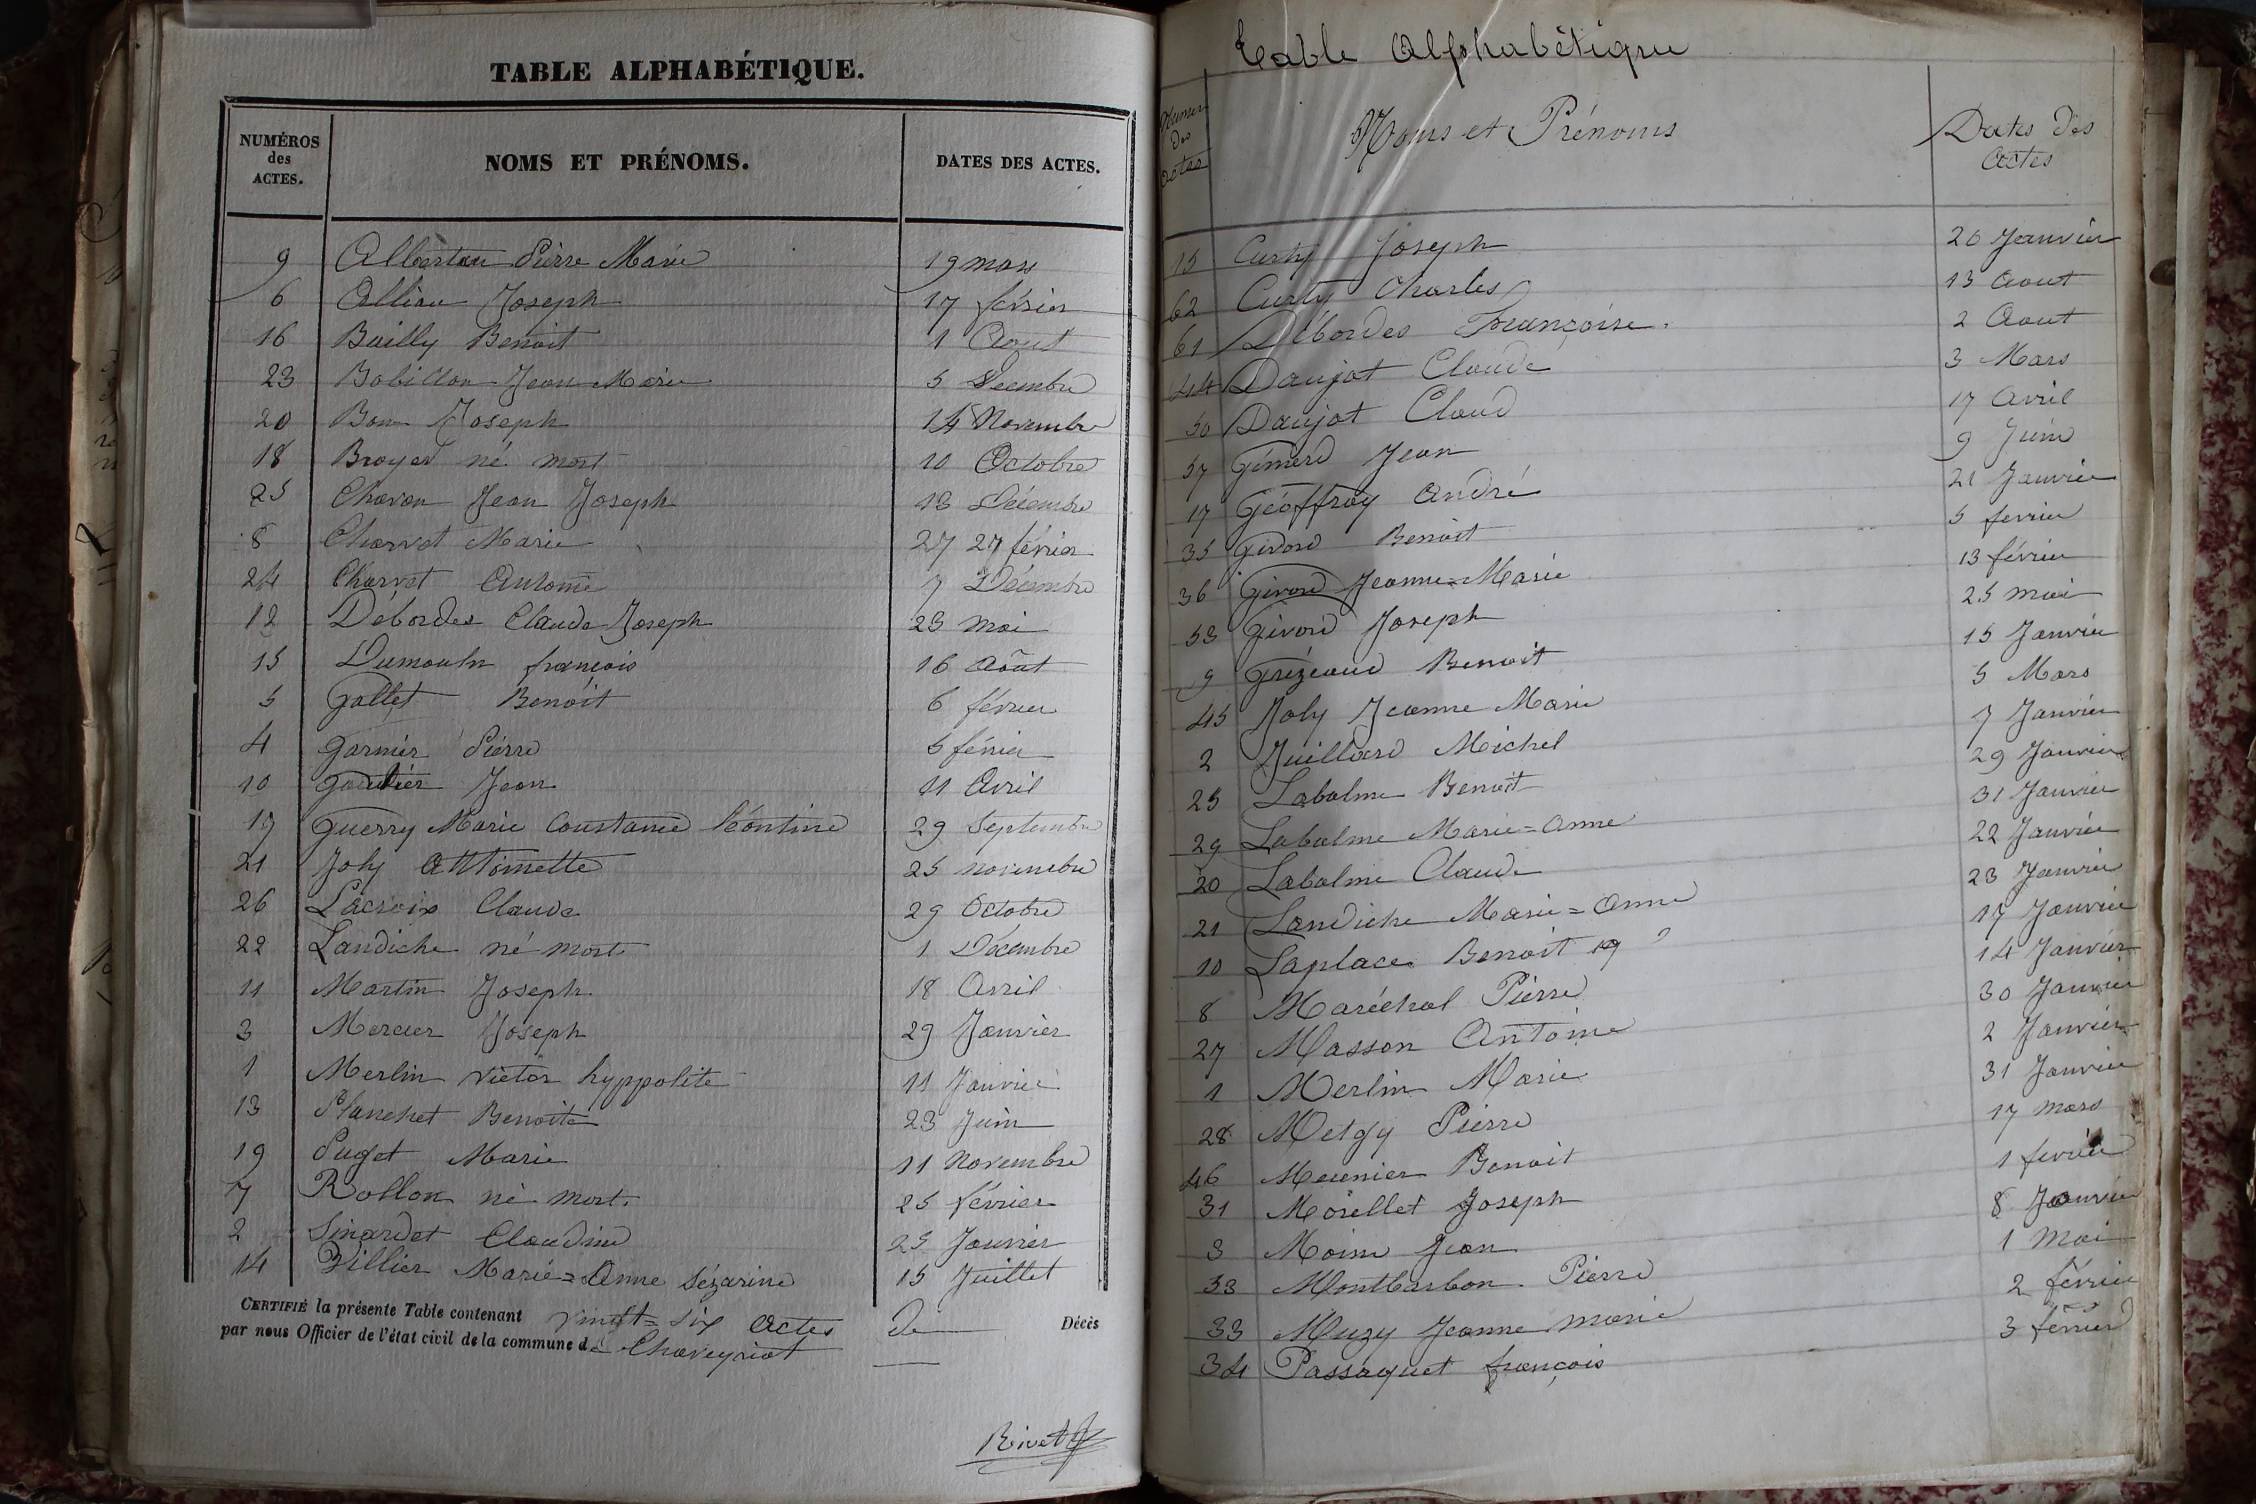 TABLE ALPHABÉTIQUE.
NUMÉROS des ACTES. NOMS ET PRÉNOMS. DATES DES ACTES.
9 Albertan Pierre Marie 19 mars
6 Alliau Joseph 17 février
16 Bailly Benoit 1 Aout
23 Bobillon Jean Marie 5 Decembre
20 Bon Joseph 14 Novembre
18 Broyer né mort 10 Octobre
25 Chavan Jean Joseph 13 Décembre
8 Charvet Marie 27 27 février
24 Charvet Antoine 7 Décembre
12 Debordes Claude Joseph 23 mai
15 Dumoulin françois 16 Août
5 Gallet Benoit 6 février
4 Garnier Pierre 5 février
10 Gautier Jean 11 Avril
17 Guerry Marie Constance Léontine 29 Septembre
21 Joly Antoinette 25 novembre
26 Lacroix Claude 29 Octobre
22 Landiche né mort 1 Décembre
11 Martin Joseph 18 Avril
3 Mercier Joseph 29 Janvier
1 Merlin victor hyppolite 11 Janvier
13 Planchet Benoite 23 Juin
19 Puget Marie 11 Novembre
7 Rollon né mort. 25 février
2 Sinardet Claudine 25 Janvier
14 Villier Marie=Anne Sézarine 15 Juillet
CERTIFIÉ la présente Table contenant vingt=six actes de Décès
par nous Officier de l'état civil de la commune de Chaveyriat
Rivet
Table Alphabétique
Numeros des actes Noms et Prénoms Dates des actes
15 Curty Joseph 20 Janvier
62 Curty Charles 13 Aout
61 Débordes Françoise. 2 Aout
44 Daujat Claude 3 Mars
50 Daujat Claud 17 Avril
57 Gémerd Jean 9 Juin
17 Géoffray André 21 Janvier
35 Givord Benoit 5 fevrier
36 Givord Jeanne=Marie 13 février
53 Givord Joseph 25 mai
9 Grézaud Benoit 15 Janvier
45 Joly Jeanne Marie 5 Mars
2 Juillard Michel 7 Janvier
25 Labalme Benoit 29 Janvier
29 Labalme Marie=Anne 31 Janvier
20 Labalme Claude 22 Janvier
21 Landiche Marie=Anne 23 Janvier
10 Laplace Benoit 17 Janvier
8 Maréchal Pierre 14 Janvier
27 Masson Antoine 30 Janvier
1 Merlin Marie 2 Janvier
28 Metgy Pierre 31 Janvier
46 Meunier Benoit 17 mars
31 Morellet Joseph 1 fevrier
3 Moine Jean 8 Janvier
53 Montbarbon Pierre 1 Mai
33 Muzy Jeanne marie 2 février
34 Passaquet françois 3 février